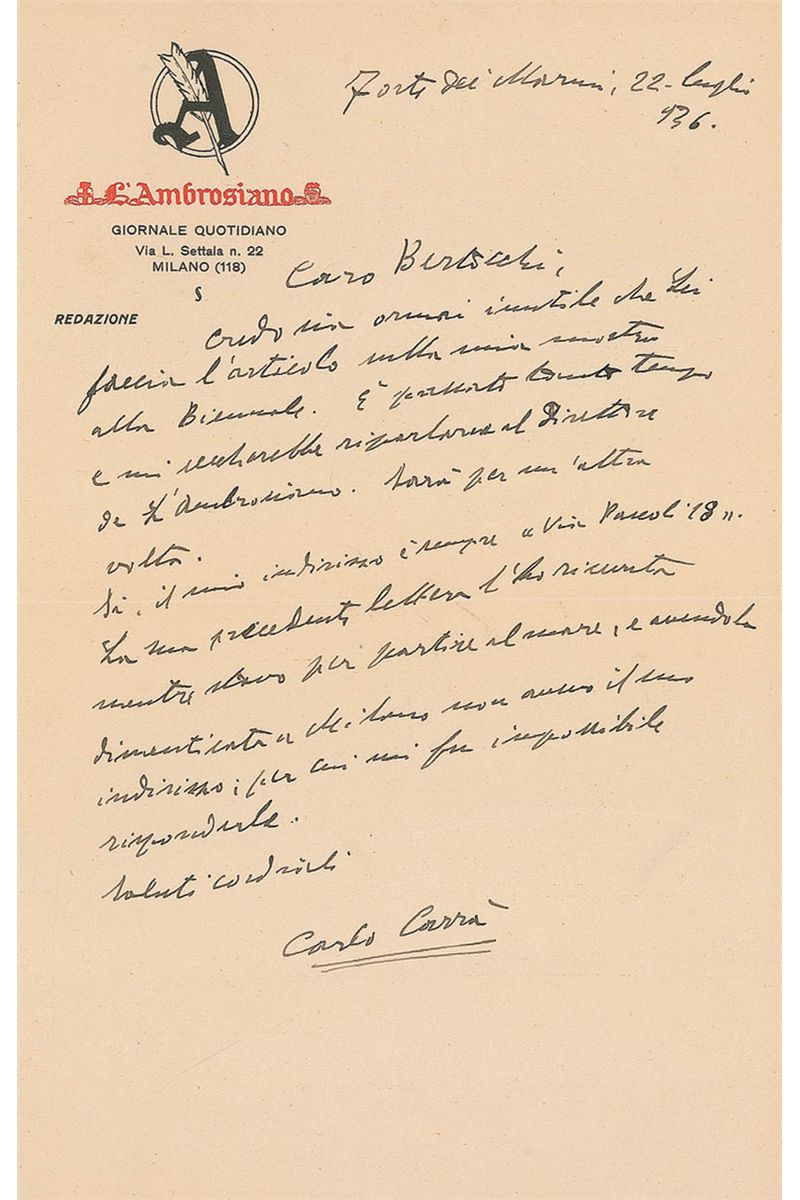 A
L'Ambrosiano
GIORNALE QUOTIDIANO
Via L. Settala n. 22
MILANO (118)
S
REDAZIONE
Forte dei Marmi, 22 - luglio
936.
Caro Bertocchi,
credo sia ormai inutile che Lei
faccia l'articolo sulla mia mostra
alla Biennale. È passato tanto tempo
e mi seccherebbe riparlarne al Direttore
de L'Ambrosiano. Sarà per un'altra
volta.
Sì, il mio indirizzo è sempre "Via Pascoli 18".
La sua precedente lettera l'ho ricevuta
mentre stavo per partire al mare, e avendola
dimenticata a Milano non avevo il suo
indirizzo; per cui mi fu impossibile
risponderle.
Saluti cordiali
Carlo Carrà